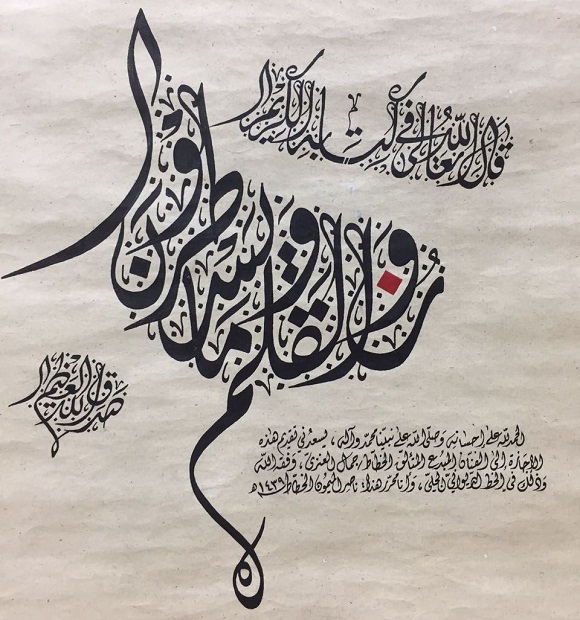 قال الله تعالى في كتابه الكريم
ن والقلم وما يسطرون
صدق الله العظيم
الحمد لله على إحسانه وصلى الله على نبينا محمد وآله، يسعدني تقديم هذه
الإجازة إلى الفنان المبدع المتألق الخطاط / جمال العنزي، وفقه الله
وذلك في الخط الديواني الجلي، وأنا محرر هذا: ناصر الميمون الخطاط ١٤٣٩هـ